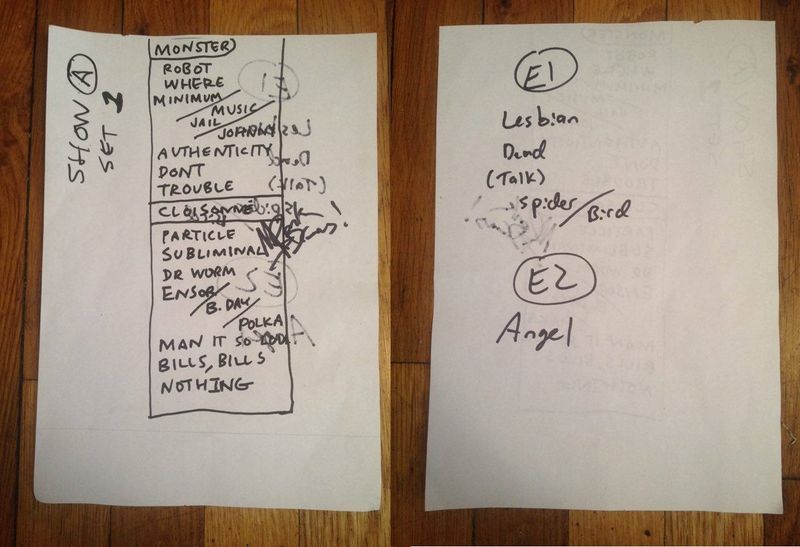 SHOW A
SET 1
MONSTER
ROBOT
WHERE
MINIMUM
MUSIC
JAIL
JOHNNY
AUTHENTICITY
DONT
TROUBLE
CLOISONNÉ
PARTICLE
SUBLIMINAL
DR WORM
ENSOR
B. DAY
POLKA
MAN IT SO LOUD
BILLS, BILLS
NOTHING
E1
Lesbian
Dead
(Talk)
Spider / Bird
E2
Angel